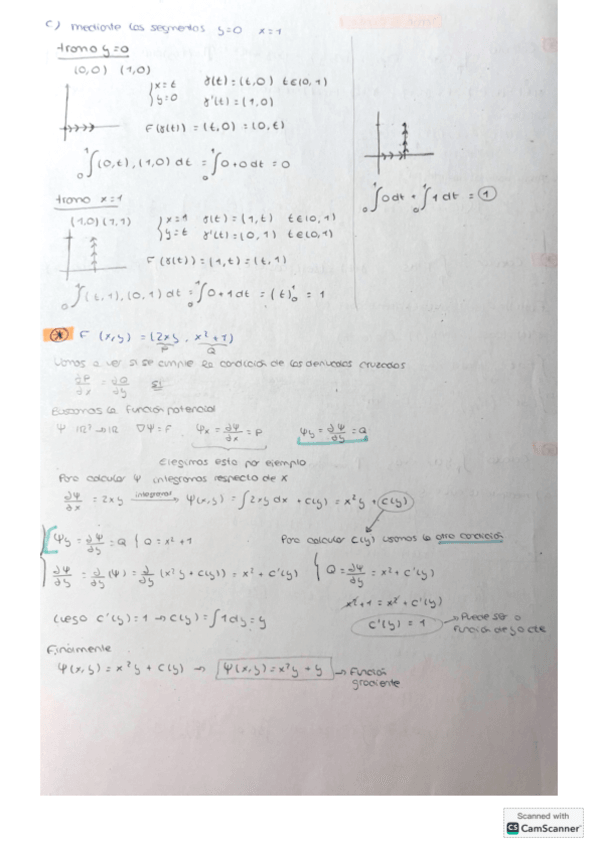 c) mediante los segmentos y=0 x=1
tramo y=0
(0,0) (1,0)
{x=t
{y=0
γ(t)=(t,0) t∈(0,1)
γ'(t)=(1,0)
F(γ(t))=(t,0)=(0,t)
∫₀¹(0,t),(1,0)dt = ∫₀¹0+0dt=0
∫₀¹0dt+∫₀¹1dt=1
tramo x=1
(1,0)(1,1)
{x=1
{y=t
γ(t)=(1,t) t∈(0,1)
γ'(t)=(0,1) t∈(0,1)
F(γ(t))=(1,t)=(t,1)
∫₀¹(t,1),(0,1)dt=∫₀¹0+1dt=(t)₀¹=1
* F(x,y)=(2xy, x²+1)
P Q
Vamos a ver si se cumple la condición de las derivadas cruzadas
∂P/∂x = ∂Q/∂y Sí
Buscamos la función potencial
Ψ ℝ²→ℝ ∇Ψ=F Ψx=∂Ψ/∂x=P Ψy=∂Ψ/∂y=Q
Elegimos esta por ejemplo
Para calcular Ψ integramos respecto de x
∂Ψ/∂x=2xy integramos→ Ψ(x,y)=∫2xy dx+C(y)=x²y+C(y)
Para calcular C(y) usamos la otra condición
Ψy=∂Ψ/∂y=Q { Q=x²+1
∂Ψ/∂y=∂/∂y(Ψ)=∂/∂y(x²y+C(y))=x²+C'(y)
{ Q=∂Ψ/∂y=x²+C'(y)
x²+1=x²+C'(y)
C'(y)=1 → Puede ser
función de y o cte
Luego C'(y)=1→C(y)=∫1dy=y
Finalmente
Ψ(x,y)=x²y+C(y) → Ψ(x,y)=x²y+y → Función
gradiente
Scanned with
CS CamScanner